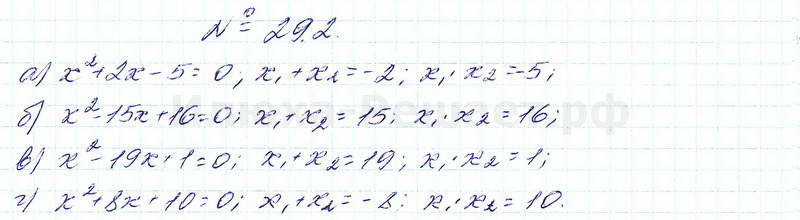 № 29.2.
а) x²+2x-5=0; x₁+x₂=-2; x₁·x₂=-5;
б) x²-15x+16=0; x₁+x₂=15; x₁·x₂=16;
в) x²-19x+1=0; x₁+x₂=19; x₁·x₂=1;
г) x²+8x+10=0; x₁+x₂=-8; x₁·x₂=10.